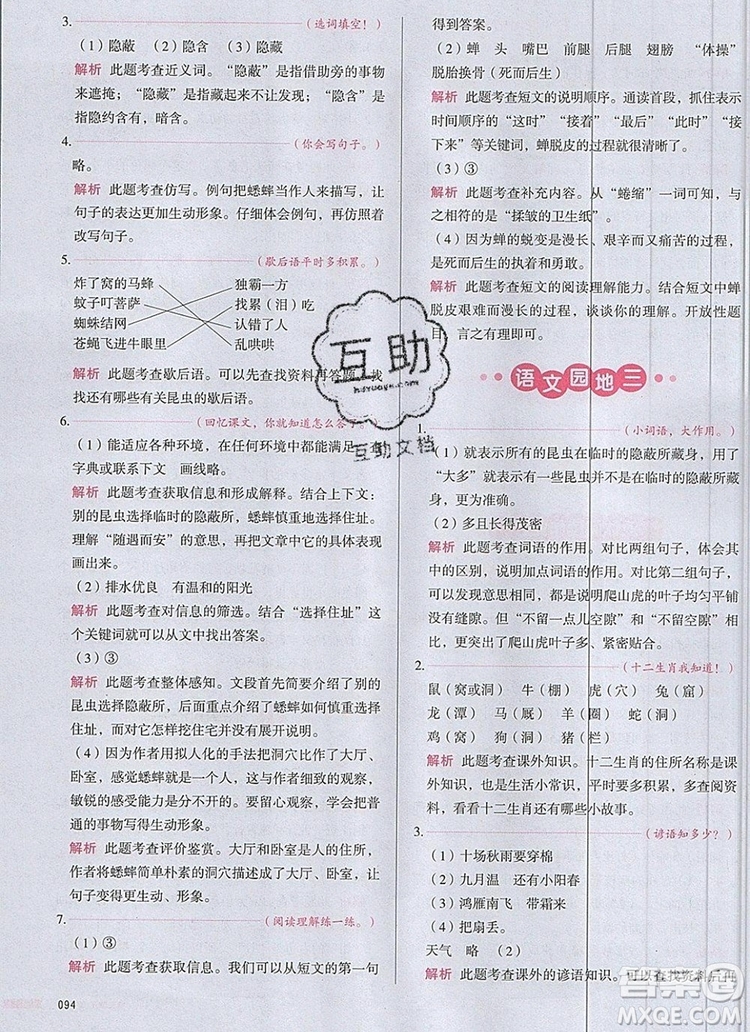 3.（选词填空！）
（1）隐蔽　（2）隐含　（3）隐藏
解析　此题考查近义词。“隐蔽”是指借助旁的事物
来遮掩；“隐藏”是指藏起来不让发现；“隐含”是
指隐约含有，暗含。
4.（你会写句子。）
略。
解析　此题考查仿写。例句把蟋蟀当作人来描写，让
句子的表达更加生动形象。仔细体会例句，再仿照着
改写句子。
5.（歇后语平时多积累。）
炸了窝的马蜂　独霸一方
蚊子叮菩萨　找累（泪）吃
蜘蛛结网　认错了人
苍蝇飞进牛眼里　乱哄哄
解析　此题考查歇后语。可以先查找资料再答题，找
找还有哪些有关昆虫的歇后语。
6.（回忆课文，你就知道怎么答了。）
（1）能适应各种环境，在任何环境中都能满足
字典或联系下文　画线略。
解析　此题考查获取信息和形成解释。结合上下文：
别的昆虫选择临时的隐蔽所，蟋蟀慎重地选择住址。
理解“随遇而安”的意思，再从文章中查找信息画
出来。
（2）排水优良　有温和的阳光
解析　此题考查对信息的筛选。结合“选择住址”这
个关键词就可以从文中找出答案。
（3）③
解析　此题考查整体感知。文段首先简要介绍了别的
昆虫选择隐蔽所，后面重点介绍了蟋蟀如何慎重选择
住址，而对它怎样挖住宅没有展开说明。
（4）因为作者用拟人化的手法把洞穴比作了大厅、
卧室，感觉亲切，这些与作者细致的观察，
敏锐的感受能力是分不开的。要留心观察，把普
通的事物写得生动形象。
解析　此题考查评价鉴赏。大厅和卧室是人的居所，
将蟋蟀简单朴素的洞穴具体描写为大厅和卧室，让
句子变得更生动、形象。
7.（阅读理解练一练。）
（1）③
解析　此题考查获取信息。我们可以从短文的第一句
094
得到答案。
（2）蝉　头　嘴巴　前腿　后腿　翅膀　“体操”
脱胎换骨（死而后生）
解析　此题考查短文的说明顺序。通读首段，抓住表示
时间顺序的“这时”“接着”“最后”“此时”“接
下来”等关键词，蝉脱皮的过程就很清楚了。
（3）③
解析　此题考查补充内容。从“蜷缩”一词可知，与
之相符的是“揉皱的卫生纸”。
（4）因为蝉的蜕变是漫长、艰辛而又痛苦的过程，
是死而后生的执着和勇气。
解析　此题考查短文的阅读理解能力。结合短文中蝉
脱皮艰难而漫长的过程，谈谈你的理解。开放性题
目，言之有理即可。
语文园地三
1.（小词语，大作用。）
（1）就表示所有的昆虫在临时的隐蔽所藏身，用了
“大多”就表示大部分昆虫在临时的隐蔽所藏身，还
有其他的情况。
（2）多且长得茂密
解析　此题考查词语的作用。对比两组句子，体会其
中的区别，说说发现。对比第二组句子，
可以发现意思不同，是说明爬山虎的叶子均匀平铺
没有缝隙。但“不留一点儿空隙”和“不留一点儿缝隙”
更突出了爬山虎叶子多、叶子非常茂密。
2.（十二生肖我知道！）
鼠（窝或洞）　牛（棚）　虎（穴）　兔（窟）
龙（潭）　马（厩）　羊（圈）　蛇（洞）
鸡（窝）　狗（窝）　猪（圈）
解析　此题考查课外知识。十二生肖的住所名称是课
外知识，也是生活小常识，平时要多积累，多查阅资
料，看看十二生肖还有哪些小故事。
3.（谚语知多少？）
（1）十场秋雨要穿棉
（2）九月温　还有小阳春
（3）鸿雁南飞　带霜来
（4）把扇丢。
天气　略　（2）
解析　此题考查课外的谚语知识。可以查找资料后再
互助
hdzuoye.com
互助文档
答案圈
MXQE.COM